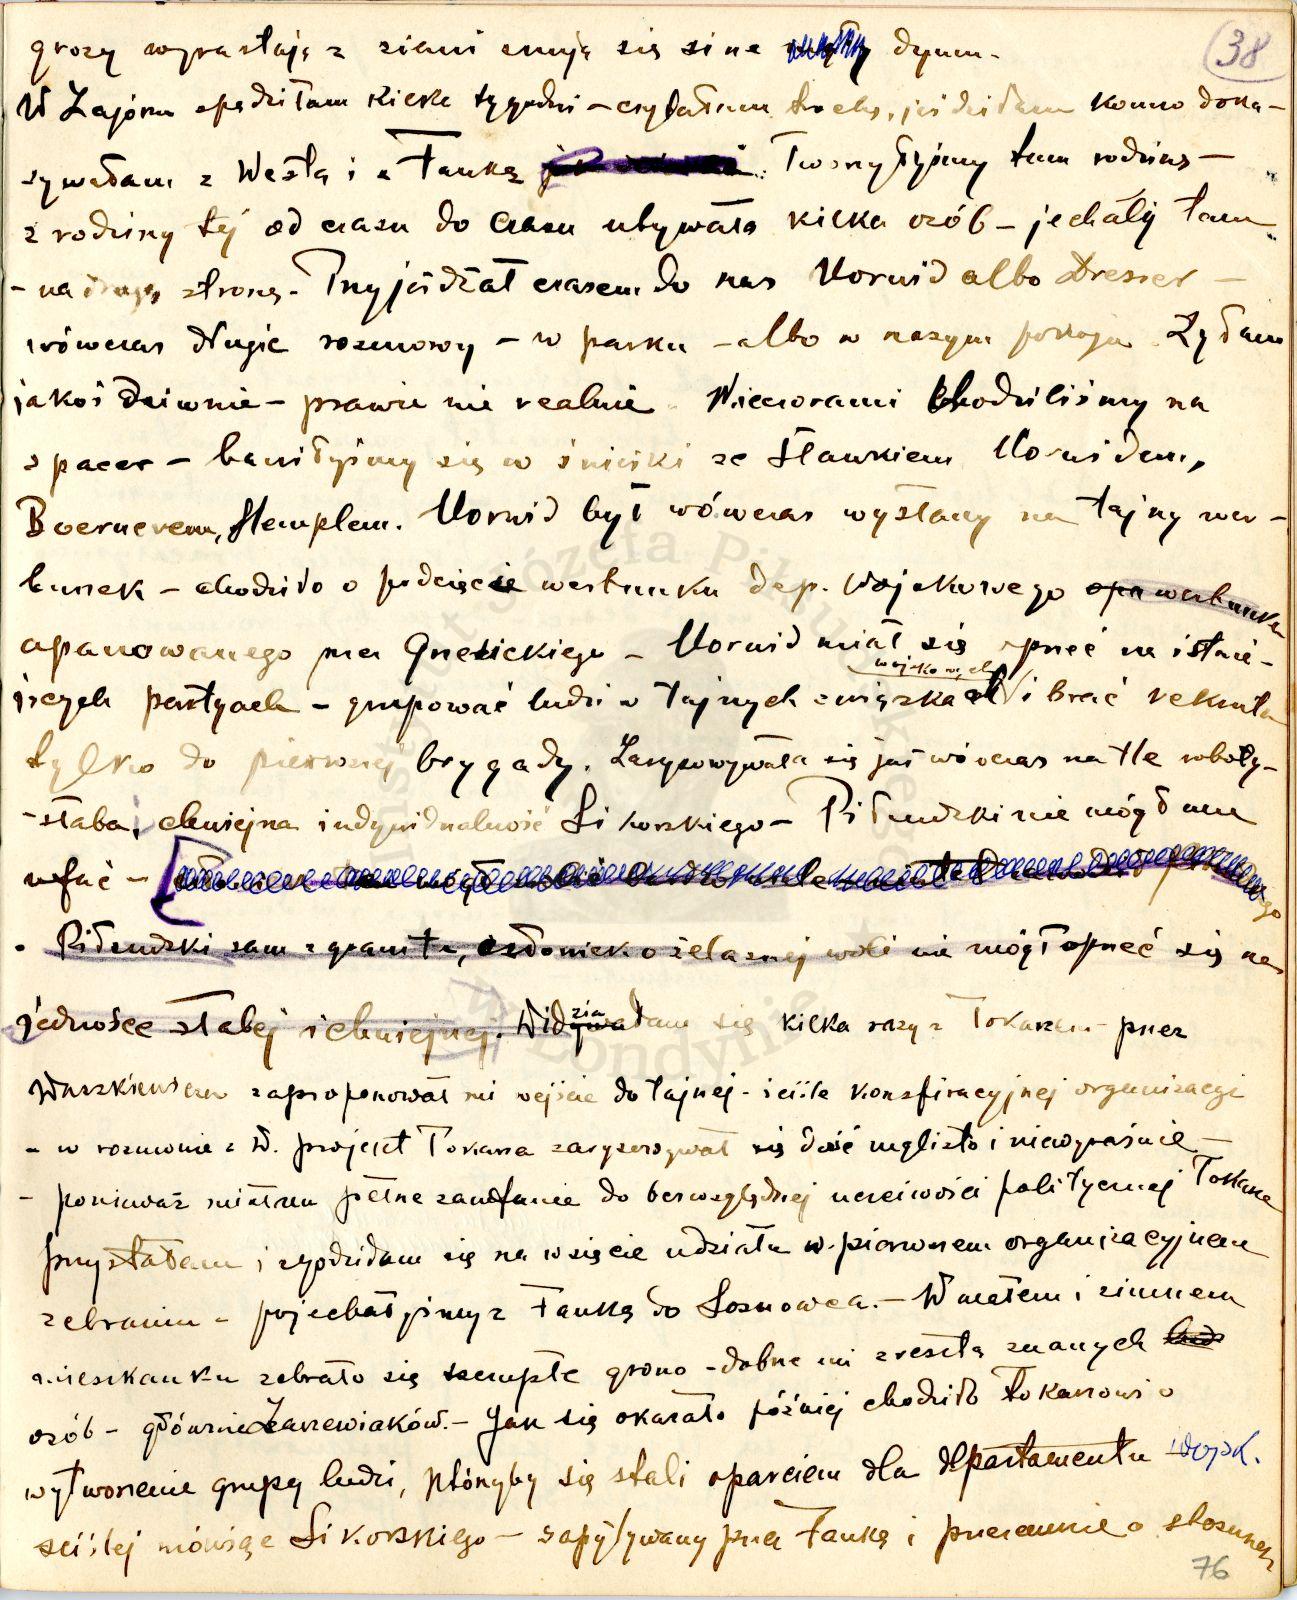 38
grozy wyrastają z ziemi snują się sine dymu -
W Zajórzu spędziłam kilka tygodni - czytałam trochę, jeździłam konno doka-
zywałam z Wesłą i z Fauką Tworzyłyśmy tam rodzinę -
z rodziny tej od czasu do czasu ubywało kilka osób - jechały tam
- na drugą stronę. Przyjeżdżał czasem do nas Norwid albo Dresser -
wówczas długie rozmowy - w parku - albo w naszym pokoju. Żyłam
jakoś dziwnie - prawie nie realnie. Wieczorami chodziliśmy na
spacer - bawiłyśmy się w śnieżki ze Sławkiem, Norwidem,
Boernerem, Stemplem. Norwid był wówczas wysłany na tajny wer-
bunek - chodziło o podcięcie werbunku dep. Wojskowego opa werbunku
opanowanego przez - Norwid miał się oprzeć na istnie-
jących partyach - grupować ludzi w tajnych związkach wojskowych i brać rekruta
tylko do pierwszej brygady. Zarysowywała się już wówczas na tle roboty-
- słaba, chwiejna indywidualność Sikorskiego - Piłsudski nie mógł mu
ufać -
. Piłsudski sam z granitu, człowiek o żelaznej woli nie mógł oprzeć się na
jednostce słabej i chwiejnej. Widziałam się kilka razy z Tokarzem - przez
Waszkiewicza zaproponował mi wejście do tajnej - ściśle konspiracyjnej organizacyi
- w rozmowie z W. projekt Tokarza zarysowywał się dość mglisto i niewyraźnie -
- ponieważ miałam pełne zaufanie do bezwzględnej uczciwości politycznej Tokarza
przystałam i zgodziłam się na wzięcie udziału w pierwszem organizacyjnem
zebraniu - pojechałyśmy z Fauką do Sosnowca. - W małem i zimnem
mieszkanku zebrało się szczupłe grono - dobrze mi zresztą znanych
osób - głównie Zarzewiaków. - Jak się okazało później chodziło Tokarzowi o
wytworzenie grupy ludzi, któryby się stali oparciem dla departamentu wojsk.
ściślej mówiąc Sikorskiego - zapytywany przez Faukę i przezemnie o stosunek
76